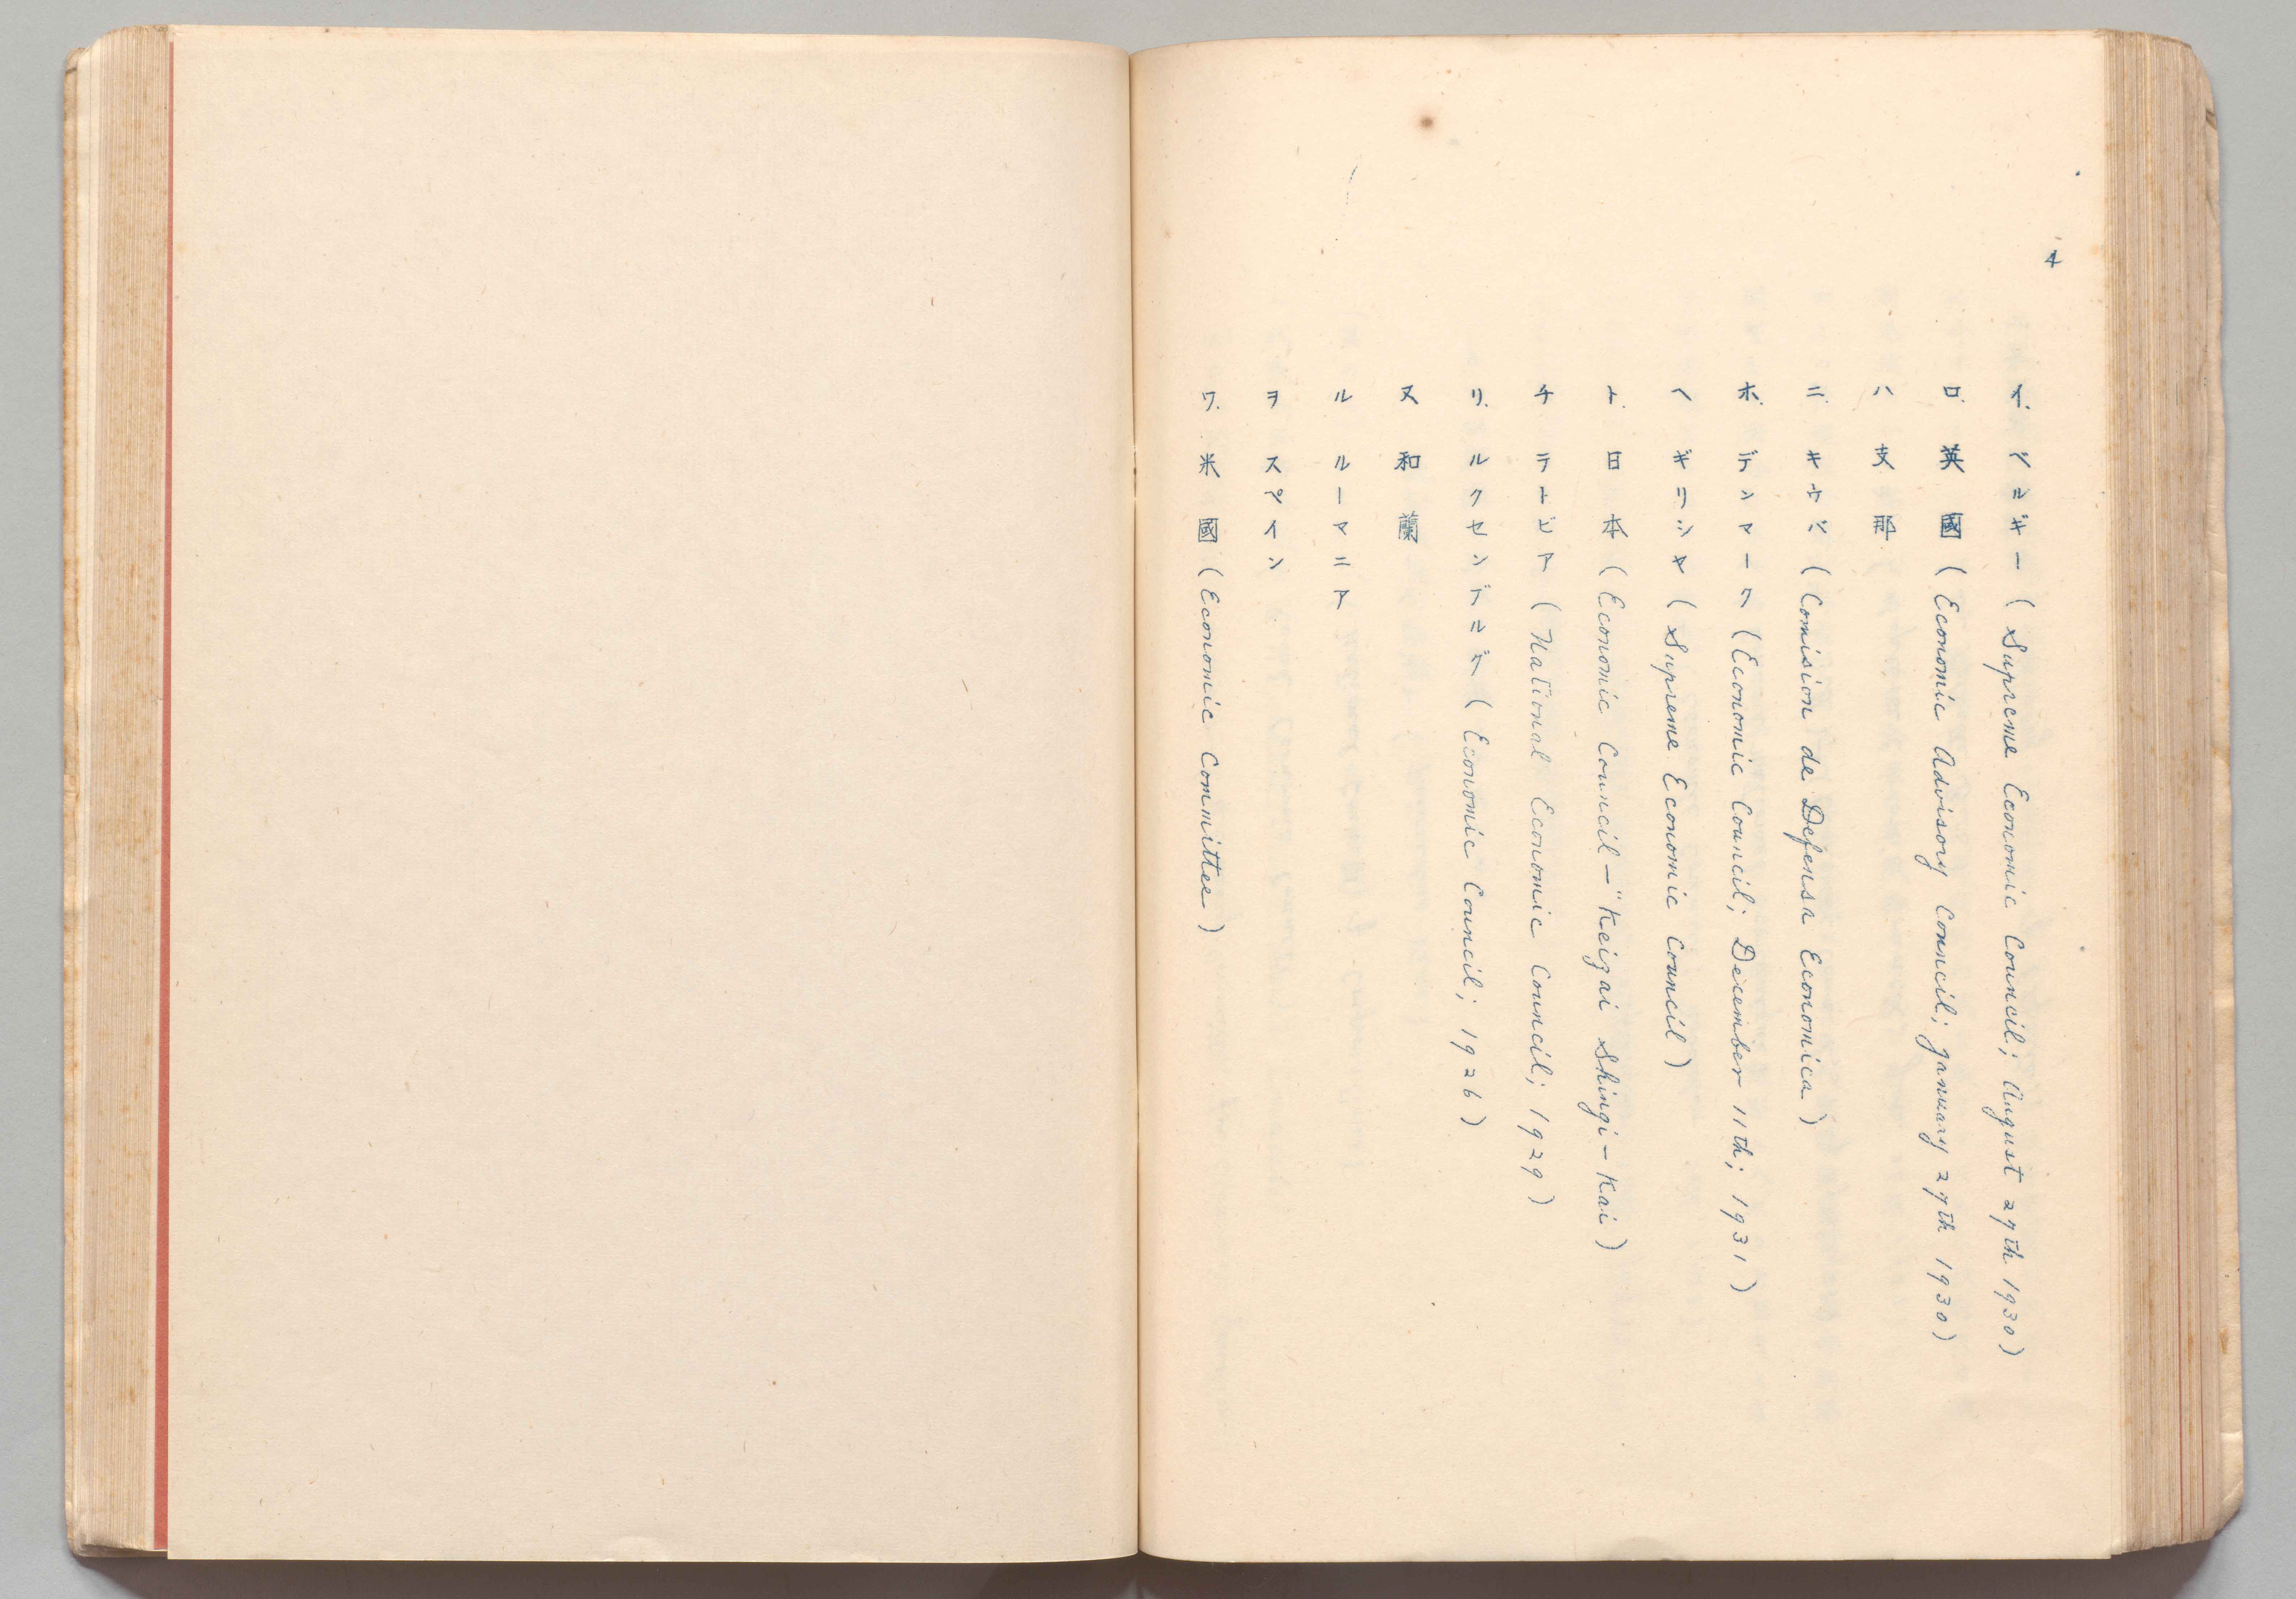 4
イ. ベルギー (Supreme Economic Council; August 27th 1930)
ロ. 英國 (Economic Advisory Council; January 27th 1930)
ハ 支那
ニ. キウバ (Comision de Defensa Economica)
ホ. デンマーク (Economic Council; December 11th; 1931)
ヘ ギリシヤ (Supreme Economic Council)
ト. 日本 (Economic Council—"Keizai Shingi-Kai)
チ ラトビア (National Economic Council; 1929)
リ. ルクセンブルグ (Economic Council; 1926)
ヌ 和蘭
ル ルーマニア
ヲ スペイン
ワ. 米國 (Economic Committee)